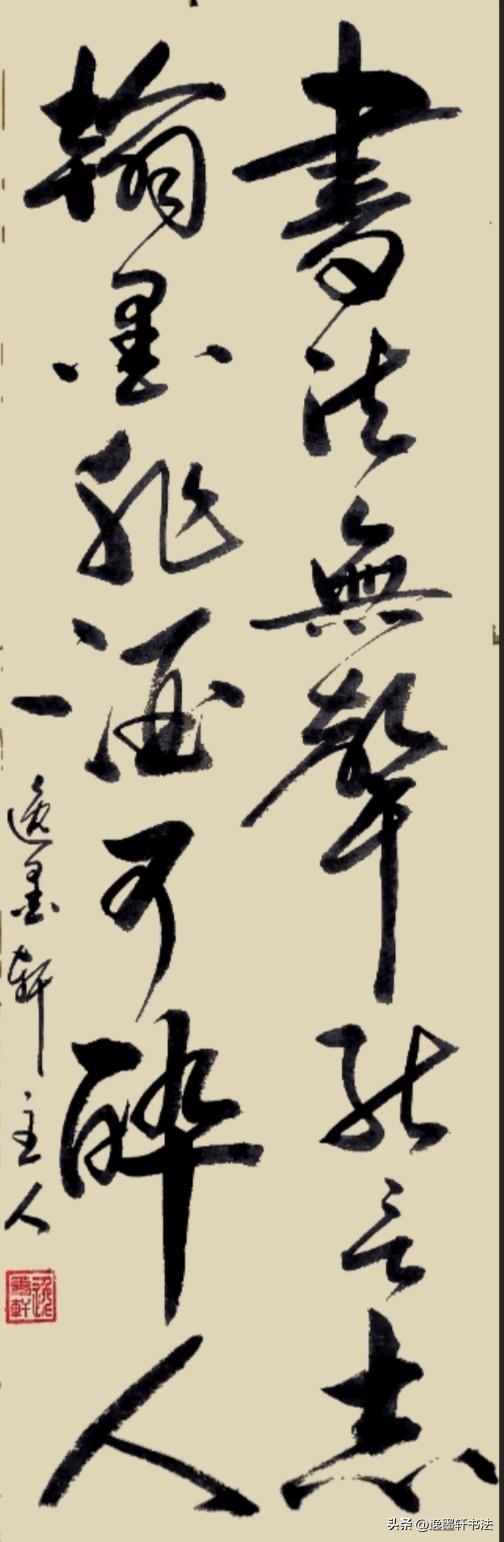 書法無聲能言志
翰墨非酒可醉人
逸墨軒主人
逸墨軒
头条 @逸墨轩书法